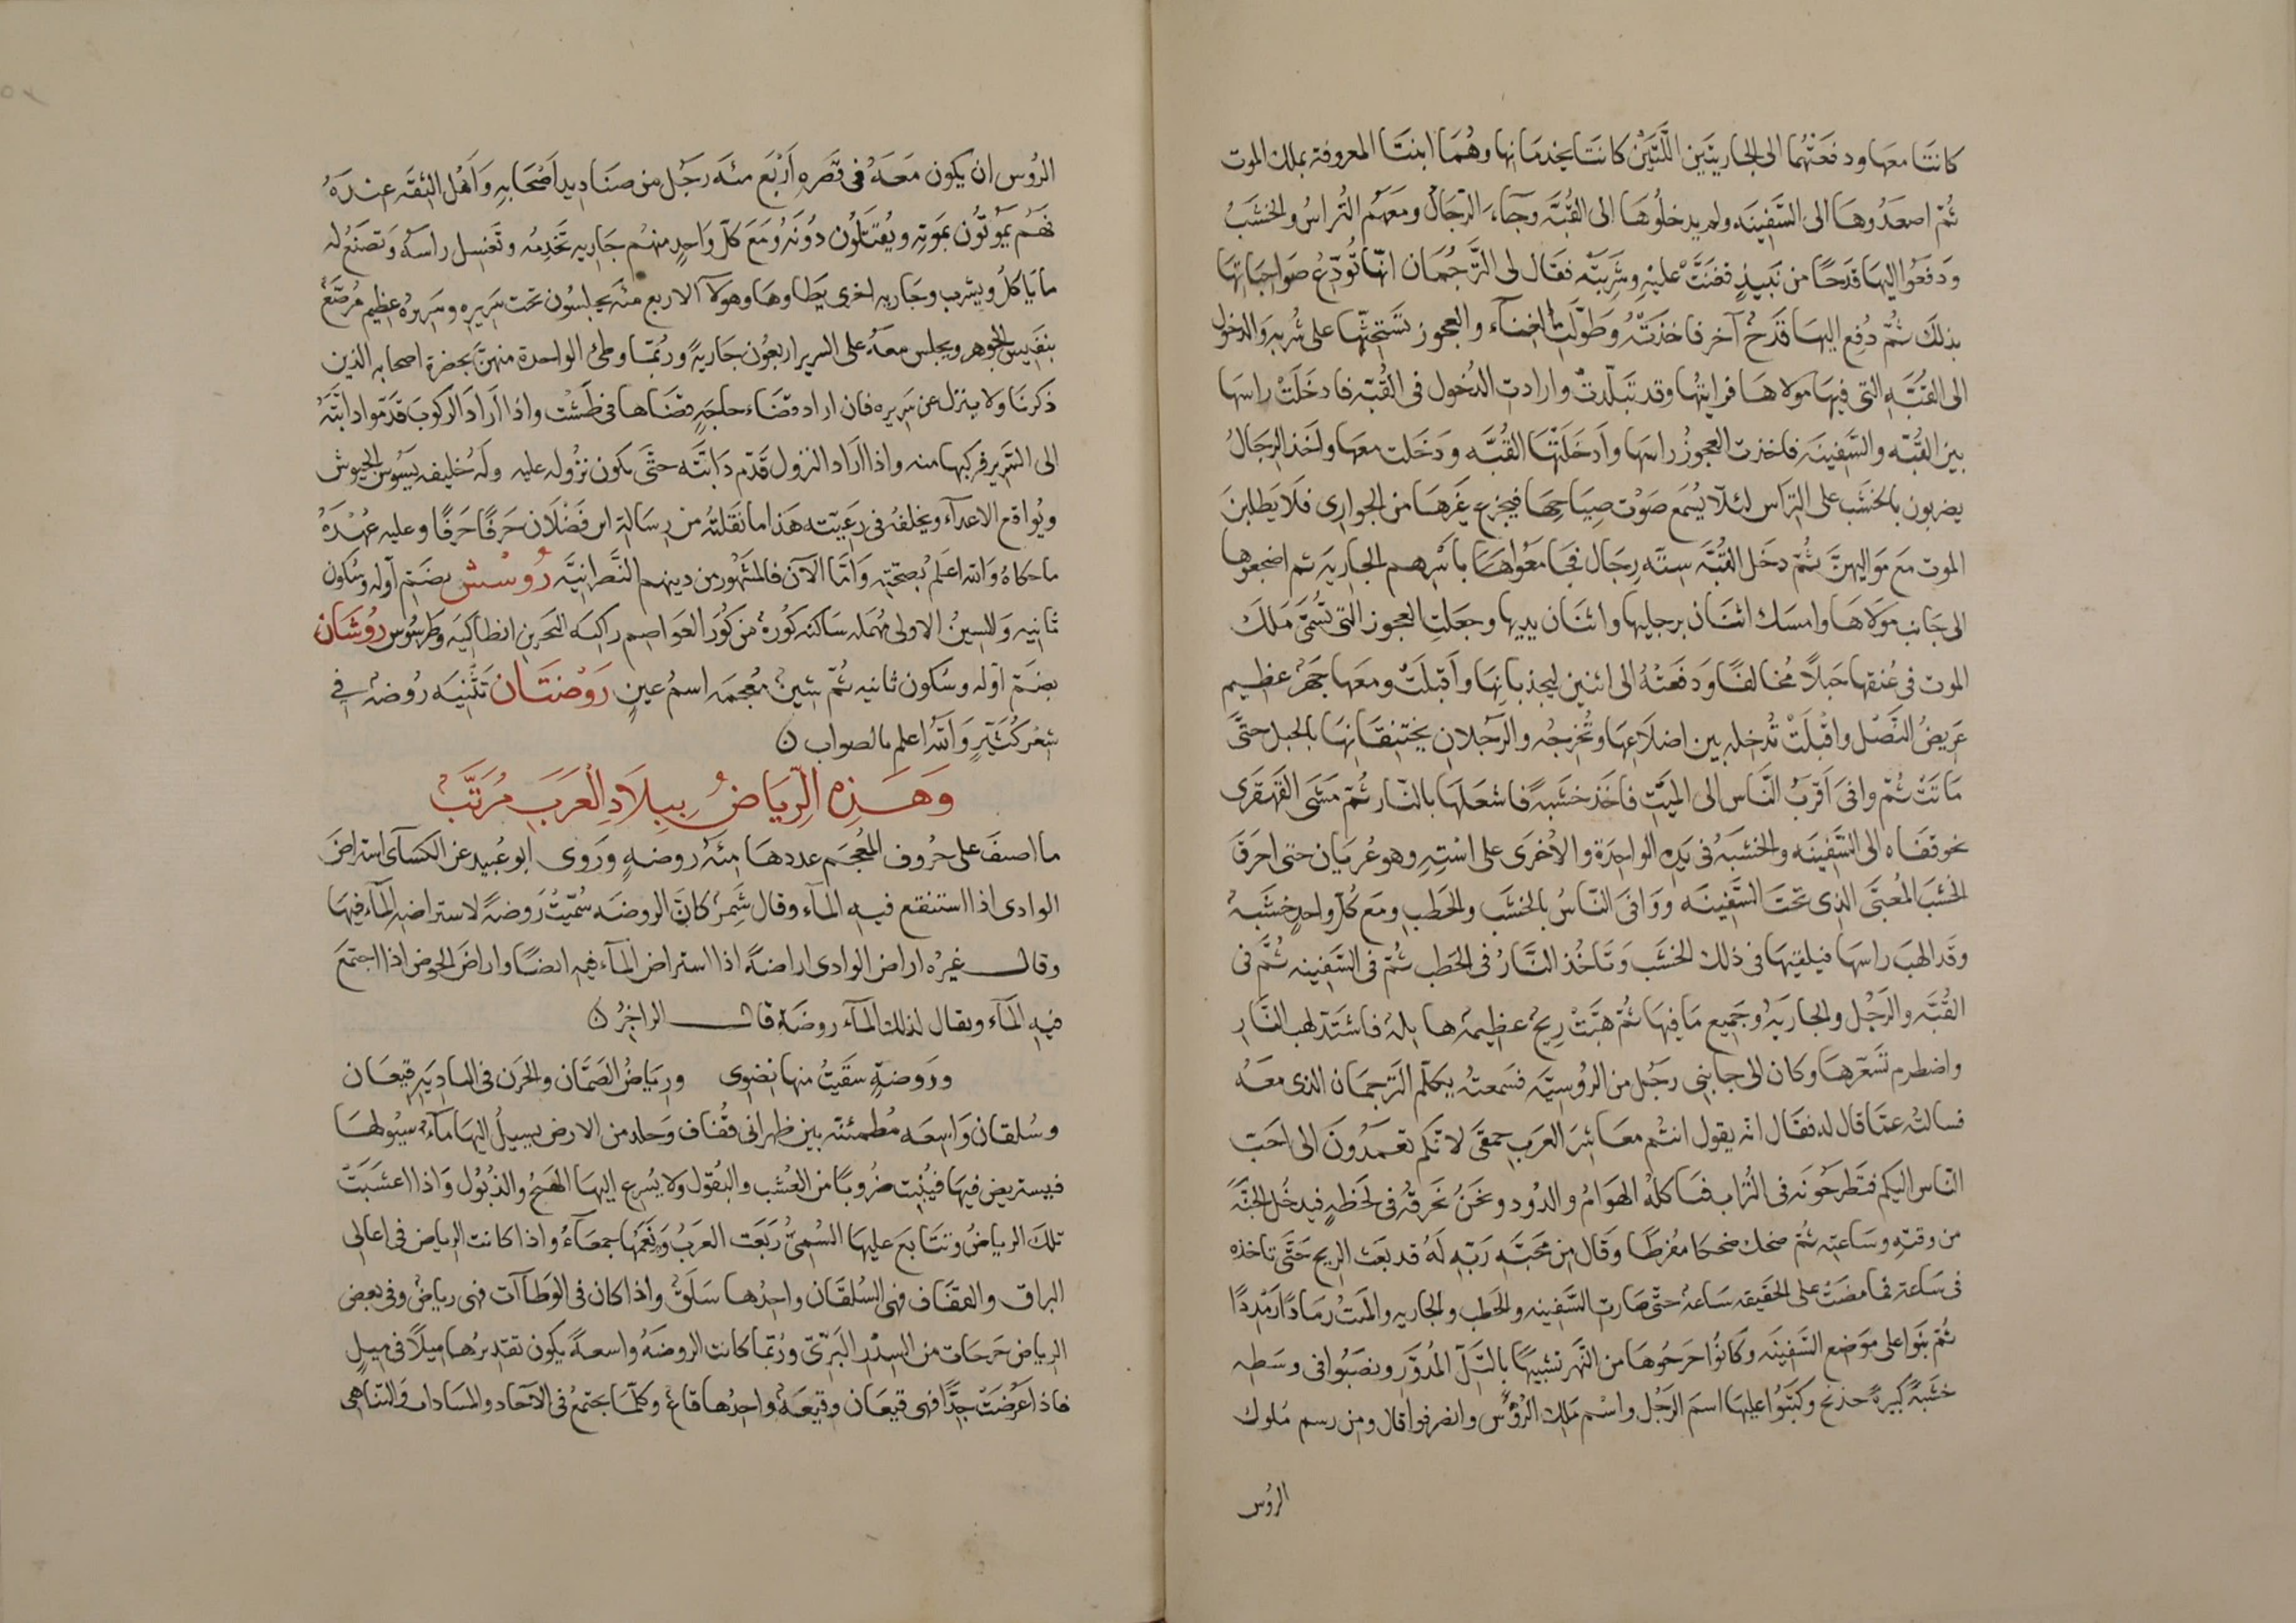 كانتا معها ودفعتهما الى الجاريتين اللتين كانتا يخدمانها وهما ابنتا المعروفة بملك الموت
ثمّ اصعدوها الى السّفينه ولم يدخلوها الى القبّه وجاء الرّجال ومعهم التراس والخشب
ودفعوا اليها قدحًا من نبيذٍ فغنّت عليه وشربته فقال لى التّرجمان انّها تودّع صواحباتها
بذلك ثمّ دفع اليها قدح آخر فاخذته وطوّلت الغناء والعجوز تستحثّها على شربه والدخول
الى القبّه التى فيها مولاها فرايتها وقد تبلّدت وارادت الدخول فى القبّه فادخلت راسها
بين القبّه والسّفينه فاخذت العجوز راسها وادخلتها القبّه ودخلت معها واخذ الرجال
يضربون بالخشب على التراس لئلّا يسمع صوت صياحها فيجزع غيرها من الجوارى فلا يطلبن
الموت مع مواليهنّ ثمّ دخل القبّه ستّه رجال فجامعوا باسرهم الجاريه ثم اضجعوها
الى جانب مولاها وامسك اثنان برجليها واثنان يديها وجعلت العجوز التى تسمّى ملك
الموت فى عنقها حبلًا مخالفًا ودفعته الى اثنين ليجذبانها واقبلت ومعها خنجر عظيم
عريض النّصل واقبلت تدخله بين اضلاعها وتخرجه والرجلان يختنقانها بالحبل حتّى
ماتت ثمّ وافى اقرب النّاس الى الميّت فاخذ خشبه فاشعلها بالنّار ثمّ مشى القهقرى
نحو قفاه الى السّفينه والخشبه فى يده الواحدة والاخرى على استه وهو عريان حتى احرق
الخشب المعبّى الذى تحت السّفينه ووافى النّاس بالخشب والحطب ومع كلّ واحدٍ خشبه
وقد الهب راسها فيلقيها فى ذلك الخشب وتاخذ النّار فى الحطب ثمّ فى السّفينه ثمّ فى
القبّه والرّجل والجاريه وجميع ما فيها ثمّ هبّت ريح عظيمة هايله فاشتدّ لهب النّار
واضطرم تسعّرها وكان الى جانبى رجل من الروسيّه فسمعته يكلّم التّرجمان الذى معه
فسالته عمّا قال له فقال انه يقول انتم معاشر العرب حمقى لانّكم تعمدون الى احبّ
النّاس اليكم فتطرحونه فى التّراب فتاكله الهوام والدود ونحن نحرقه فى لحظه فيدخل الجنّه
من وقته وساعته ثمّ ضحك ضحكا مفرطا وقال من محبّه ربّه له قد بعث الريح حتّى تاخذه
فى ساعة فما مضت على الحقيقه ساعه حتّى صارت السّفينه والحطب والجاريه والميت رمادًا رمددًا
ثمّ بنوا على موضع السّفينه وكانوا اخرجوها من النّهر شبيهًا بالتّلّ المدوّر ونصبوا فى وسطه
خشبةً كبيرةً خذنج وكتبوا عليها اسم الرّجل واسم ملك الرّوس وانصرفوا قال ومن رسم ملوك
الروس
الروس ان يكون معه فى قصره اربع مئه رجل من صناديد اصحابه واهل الثقه عنده
فهم يموتون بموته ويقتلون دونه ومع كلّ واحدٍ منهم جاريه تخدمه وتغسل راسه وتصنع له
ما ياكل ويشرب وجاريه اخرى يطاوها وهولآ الاربع مئه يجلسون تحت سريره وسريره عظيم مرصّع
بنفيس الجوهر ويجلس معه على السرير اربعون جاريةً وربّما وطئ الواحدة منهنّ بحضرة اصحابه الذين
ذكرنا ولا ينزل عن سريره فان اراد قضاء حاجةٍ قضاها فى طشت واذا اراد الركوب قدّموا دابّته
الى السّرير فركبها منه واذا اراد النزول قدّم دابّته حتّى يكون نزوله عليه وله خليفه يسوس الجيوش
ويواقع الاعداء ويخلفه فى رعيّته هذا ما نقلته من رسالة ابن فضلان حرفًا حرفًا وعليه عهدة
ما حكاه والله اعلم بصحّته وامّا الآن فالمشهور من دينهم النّصرانيّه روسس بضمّ اوله وسكون
ثانيه والسين الاولى مهمله ساكنه كورة من كور العواصم راكبه البحر بين انطاكيه وطرسوس روشان
بضمّ اوله وسكون ثانيه ثمّ شين معجمه اسم عين روضتان تثنيه روضه فى
شعر كثيّر والله اعلم بالصواب ن
وهذه الرياض ببلاد العرب مرتّب
ما اصنف على حروف المعجم عددها مئه روضه وروى ابو عبيد عن الكسآى استراض
الوادى اذا استنقع فيه المآء وقال شمر كانّ الروضه سمّيت روضة لاستراضه المآء فيها
وقال غيره اراض الوادى اراضة اذا استراض المآء فيه ايضًا واراض الحوض اذا اجتمع
فيه المآء ويقال لذلك المآء روضة قال الراجز ن
وروضةٍ سقيت منها نضوى ورياض الصّمّان والحزن فى الباديه قيعان
وسلقان واسعه مطمئنّه بين ظهرانى قفاف وجلد من الارض يسيل اليها مآء سيولها
فيستريض فيها فينبت ضروبًا من العشب والبقول ولا يسرع اليها الهيج والذبول واذا اعشبت
تلك الرياض وتتابع عليها السمىّ ربعت العرب ونعمها جمعاء واذا كانت الرياض فى اعالى
البراق والقفاف فهى السلقان واحدها سلق واذا كان فى الوطآت فهى رياض وفى بعض
الرياض حرجات من السدر البرّى وربّما كانت الروضه واسعة يكون تقديرها ميلًا فى ميل
فاذا عرضت جدًّا فهى قيعان وقيعة واحدها قاع وكلّما يجتمع فى الآخاد والمساكات والتناهى